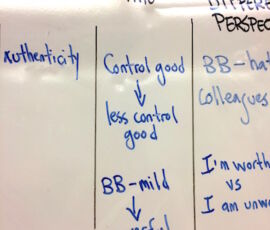 PERSPEC
Authenticity
Control good
↓
less control
good
BB-mild
↓
BB-hat
Colleagues
I'm worth
vs
I am unwo